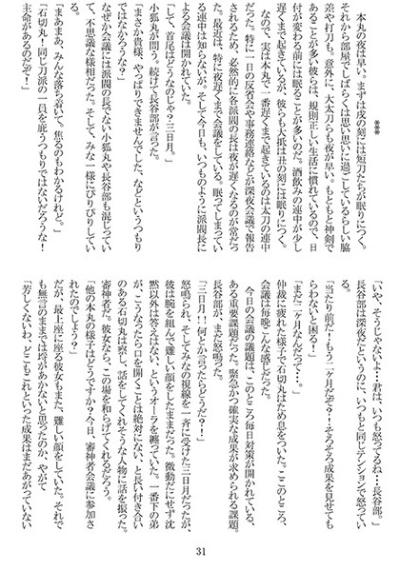 ***
本丸の夜は早い。まずは戌の刻には短刀たちが眠りにつく。
それから部屋でしばらくは思い思いに過ごしているらしい脇
差や打刀も。意外に、大太刀らも夜が早い。もともと神剣で
あることが多い彼らは、規則正しい生活に慣れているので、日
付が変わる前には眠ることが多いのだ。酒飲みの連中が少し
遅くまで起きているが、彼らも大抵は丑の刻には眠りにつく。
なので、実は本丸で一番遅くまで起きているのは太刀の連中
だった。特に一日の反省会や事務連絡などが深夜会議で報告
されるため、必然的に各派閥の長は夜が遅くなるのが常だっ
た。最近は、特に夜遅くまで会議をしている。眠ってしまってい
る連中は知らないが。そして今日も、いつものように派閥長に
よる会議は開かれていた。
「して、首尾はどうなのじゃ？三日月」
小狐丸が問う。続けて長谷部が言った。
「まさか貴様、やっぱりできませんでした、などというつもり
ではなかろうな？」
なぜか会議には派閥の長でない小狐丸や長谷部も混じってい
て、不思議な様相だった。そして、みな一様にぴりぴりしてい
る。
「まあまあ、みんな落ち着いて、焦るのもわかるけれど。」
「石切丸！同じ刀派の一員を庇うつもりではないだろうな！
主命があるのだぞ！」
「いや、そうじゃないよ…君は、いつも怒ってるね…長谷部。」
長谷部は深夜だというのに、いつもと同じテンションで怒ってい
る。
「当たり前だ…！もう二ヶ月だぞ？！そろそろ成果を見せても
らわないと困る！」
「まだ二ヶ月なんだって…。」
仲裁に疲れた様子で石切丸はため息をついた。ここのところ、
会議は毎晩こんな感じだった。
今日の会議の議題は、このところ毎日対策が開かれている、
ある重要課題だった。緊急かつ確実な成果が求められる課題。
長谷部が、まだ怒鳴った。
「三日月！！何とか言ったらどうだ！！」
怒鳴られ、そしてみなの視線を一斉に受けた三日月だったが、
彼は腕を組んで難しい顔をしたままだった。微動だにせず沈
黙以外は答えはない、というオーラを纏っていた。一番下の弟
が、こうなったら口を開くことは絶対にない、と長い付き合い
のある石切丸は察し、話をしてくれそうな人物に話を振った。
審神者だ。彼女なら、この場を和らげてくれるだろう。
「他の本丸の様子はどうですか？今日、審神者会議に参加さ
れたのでしょう？」
だが、最上座に居る彼女もまた、難しい顔をしていた。それで
も無言のままでは埒があかないと思ったのか、やがて
「芳しくないわ。どこもこれといった成果はまだあがっていない
31